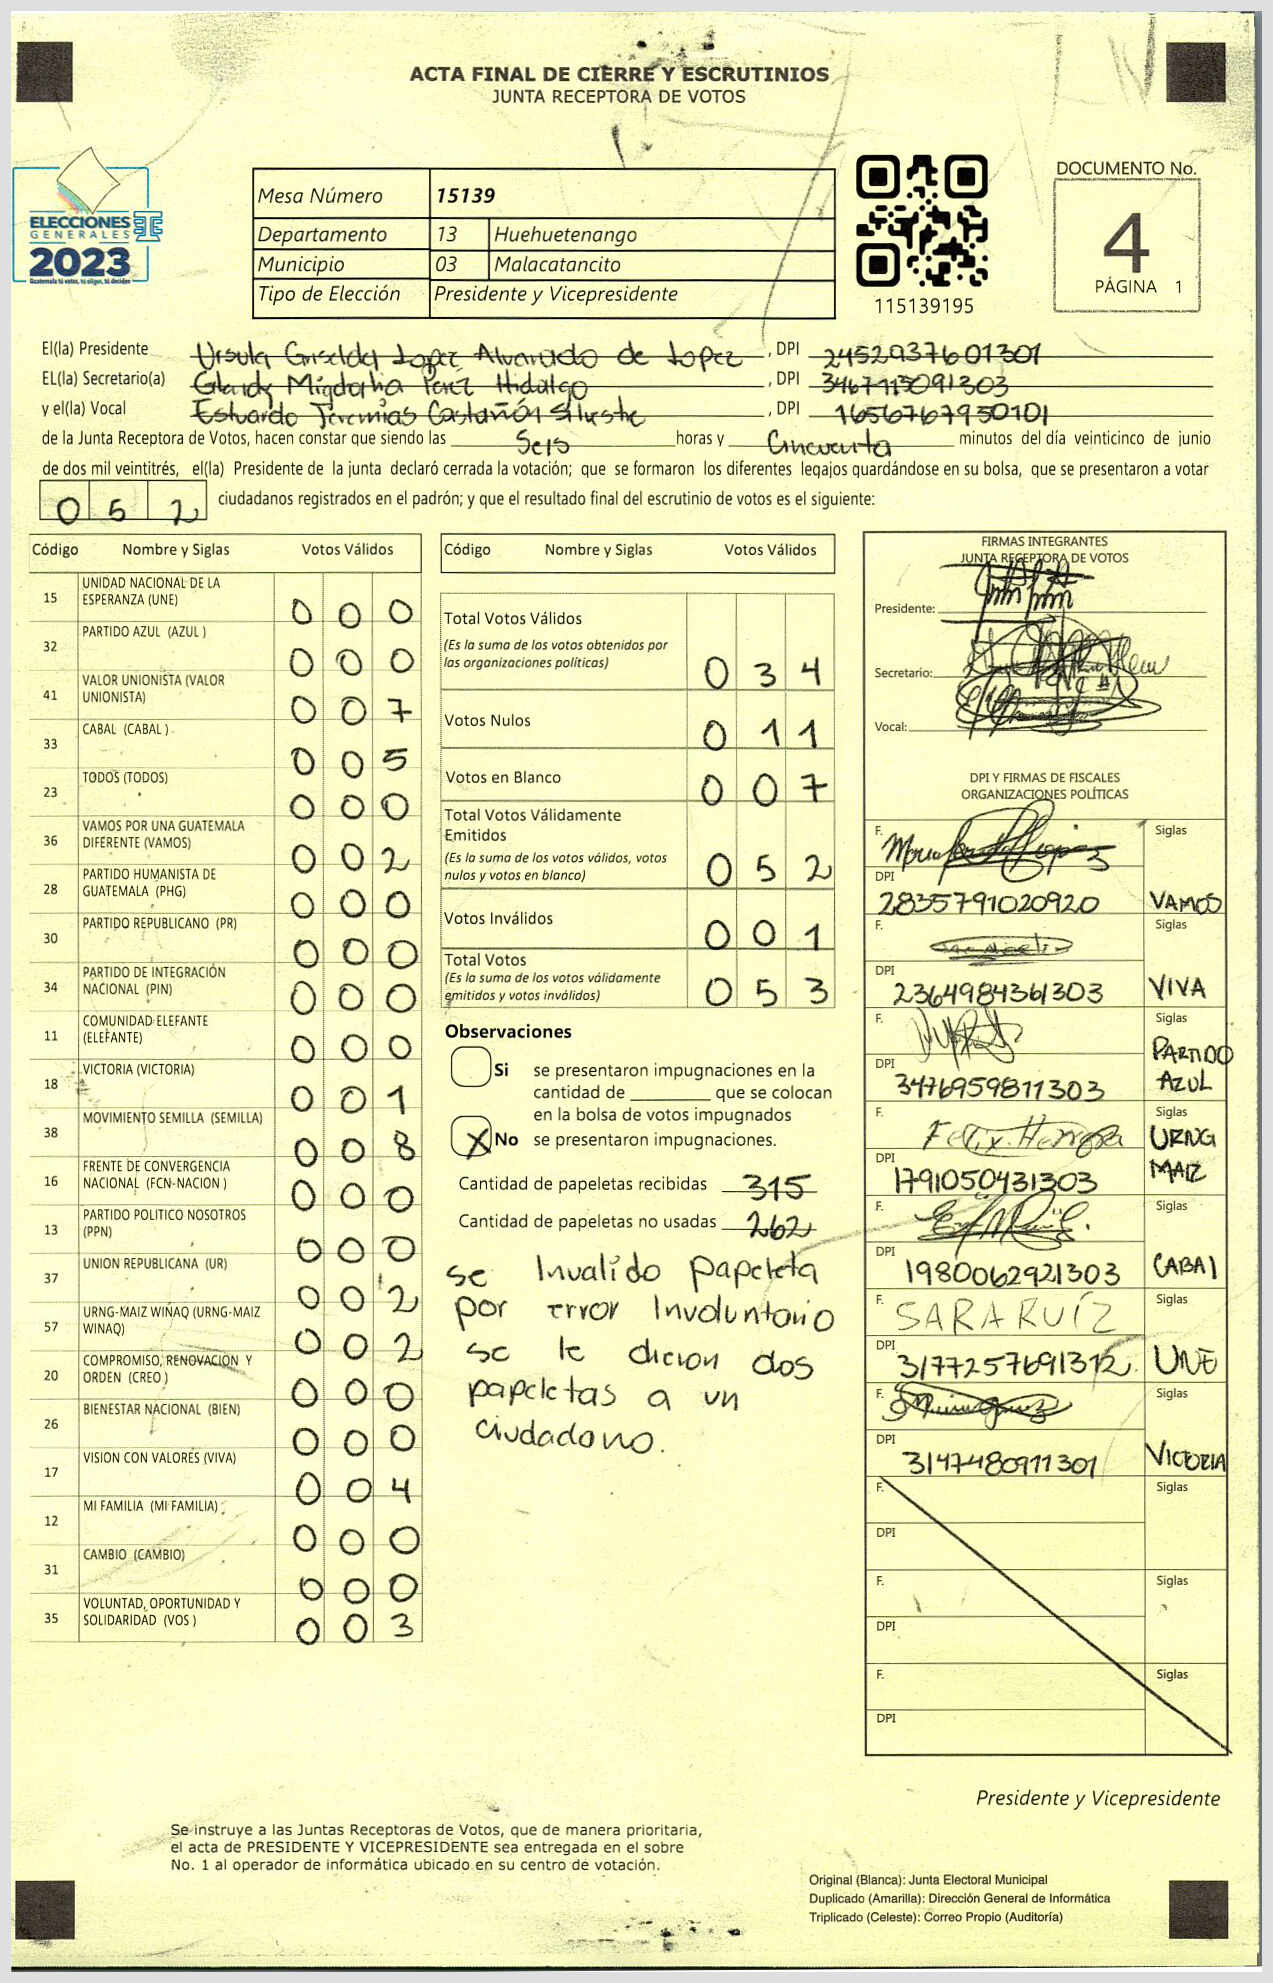 ACTA FINAL DE CIERRE Y ESCRUTINIOS
JUNTA RECEPTORA DE VOTOS
ELECCIONES
GENERALES
2023
Guatemala tú votas, tú eliges, tú decides
Mesa Número 15139
Departamento 13 Huehuetenango
Municipio 03 Malacatancito
Tipo de Elección Presidente y Vicepresidente
115139195
DOCUMENTO No.
4
PÁGINA 1
El(la) Presidente Ursula Griselda Lopez Alvarado de Lopez , DPI 2452937601301
EL(la) Secretario(a) Glendy Migdalia Perez Hidalgo , DPI 3467115091303
y el(la) Vocal Estuardo Jeremias Castañón Silvestre , DPI 1656767930101
de la Junta Receptora de Votos, hacen constar que siendo las Seis horas y Cincuenta minutos del día veinticinco de junio
de dos mil veintitrés, el(la) Presidente de la junta declaró cerrada la votación; que se formaron los diferentes legajos guardándose en su bolsa, que se presentaron a votar
0 5 2 ciudadanos registrados en el padrón; y que el resultado final del escrutinio de votos es el siguiente:
Código Nombre y Siglas Votos Válidos
15 UNIDAD NACIONAL DE LA ESPERANZA (UNE) 0 0 0
32 PARTIDO AZUL (AZUL ) 0 0 0
41 VALOR UNIONISTA (VALOR UNIONISTA) 0 0 7
33 CABAL (CABAL ) 0 0 5
23 TODOS (TODOS) 0 0 0
36 VAMOS POR UNA GUATEMALA DIFERENTE (VAMOS) 0 0 2
28 PARTIDO HUMANISTA DE GUATEMALA (PHG) 0 0 0
30 PARTIDO REPUBLICANO (PR) 0 0 0
34 PARTIDO DE INTEGRACIÓN NACIONAL (PIN) 0 0 0
11 COMUNIDAD ELEFANTE (ELEFANTE) 0 0 0
18 VICTORIA (VICTORIA) 0 0 1
38 MOVIMIENTO SEMILLA (SEMILLA) 0 0 8
16 FRENTE DE CONVERGENCIA NACIONAL (FCN-NACION ) 0 0 0
13 PARTIDO POLITICO NOSOTROS (PPN) 0 0 0
37 UNION REPUBLICANA (UR) 0 0 2
57 URNG-MAIZ WINAQ (URNG-MAIZ WINAQ) 0 0 2
20 COMPROMISO, RENOVACION Y ORDEN (CREO ) 0 0 0
26 BIENESTAR NACIONAL (BIEN) 0 0 0
17 VISION CON VALORES (VIVA) 0 0 4
12 MI FAMILIA (MI FAMILIA) 0 0 0
31 CAMBIO (CAMBIO) 0 0 0
35 VOLUNTAD, OPORTUNIDAD Y SOLIDARIDAD (VOS ) 0 0 3
Código Nombre y Siglas Votos Válidos
Total Votos Válidos
(Es la suma de los votos obtenidos por
las organizaciones políticas) 0 3 4
Votos Nulos 0 1 1
Votos en Blanco 0 0 7
Total Votos Válidamente
Emitidos
(Es la suma de los votos válidos, votos
nulos y votos en blanco) 0 5 2
Votos Inválidos 0 0 1
Total Votos
(Es la suma de los votos válidamente
emitidos y votos inválidos) 0 5 3
Observaciones
Si se presentaron impugnaciones en la
cantidad de ________ que se colocan
en la bolsa de votos impugnados
X No se presentaron impugnaciones.
Cantidad de papeletas recibidas 315
Cantidad de papeletas no usadas 262
se Invalido papeleta
por error Involuntario
se le dieron dos
papeletas a un
ciudadano.
FIRMAS INTEGRANTES
JUNTA RECEPTORA DE VOTOS
Presidente:
Secretario:
Vocal:
DPI Y FIRMAS DE FISCALES
ORGANIZACIONES POLÍTICAS
F. Siglas
DPI 2835791020920 VAMOS
F. Siglas
DPI 2364984361303 VIVA
F. Siglas
DPI 3476959811303 PARTIDO AZUL
F. Felix Herrera Siglas
DPI 1791050431303 URNG MAIZ
F. Siglas
DPI 1980062921303 CABAL
F. SARA RUÍZ Siglas
DPI 3177257691312 UNE
F. Siglas
DPI 3147480911301 VICTORIA
F. Siglas
DPI
F. Siglas
DPI
F. Siglas
DPI
Presidente y Vicepresidente
Se instruye a las Juntas Receptoras de Votos, que de manera prioritaria,
el acta de PRESIDENTE Y VICEPRESIDENTE sea entregada en el sobre
No. 1 al operador de informática ubicado en su centro de votación.
Original (Blanca): Junta Electoral Municipal
Duplicado (Amarilla): Dirección General de Informática
Triplicado (Celeste): Correo Propio (Auditoría)